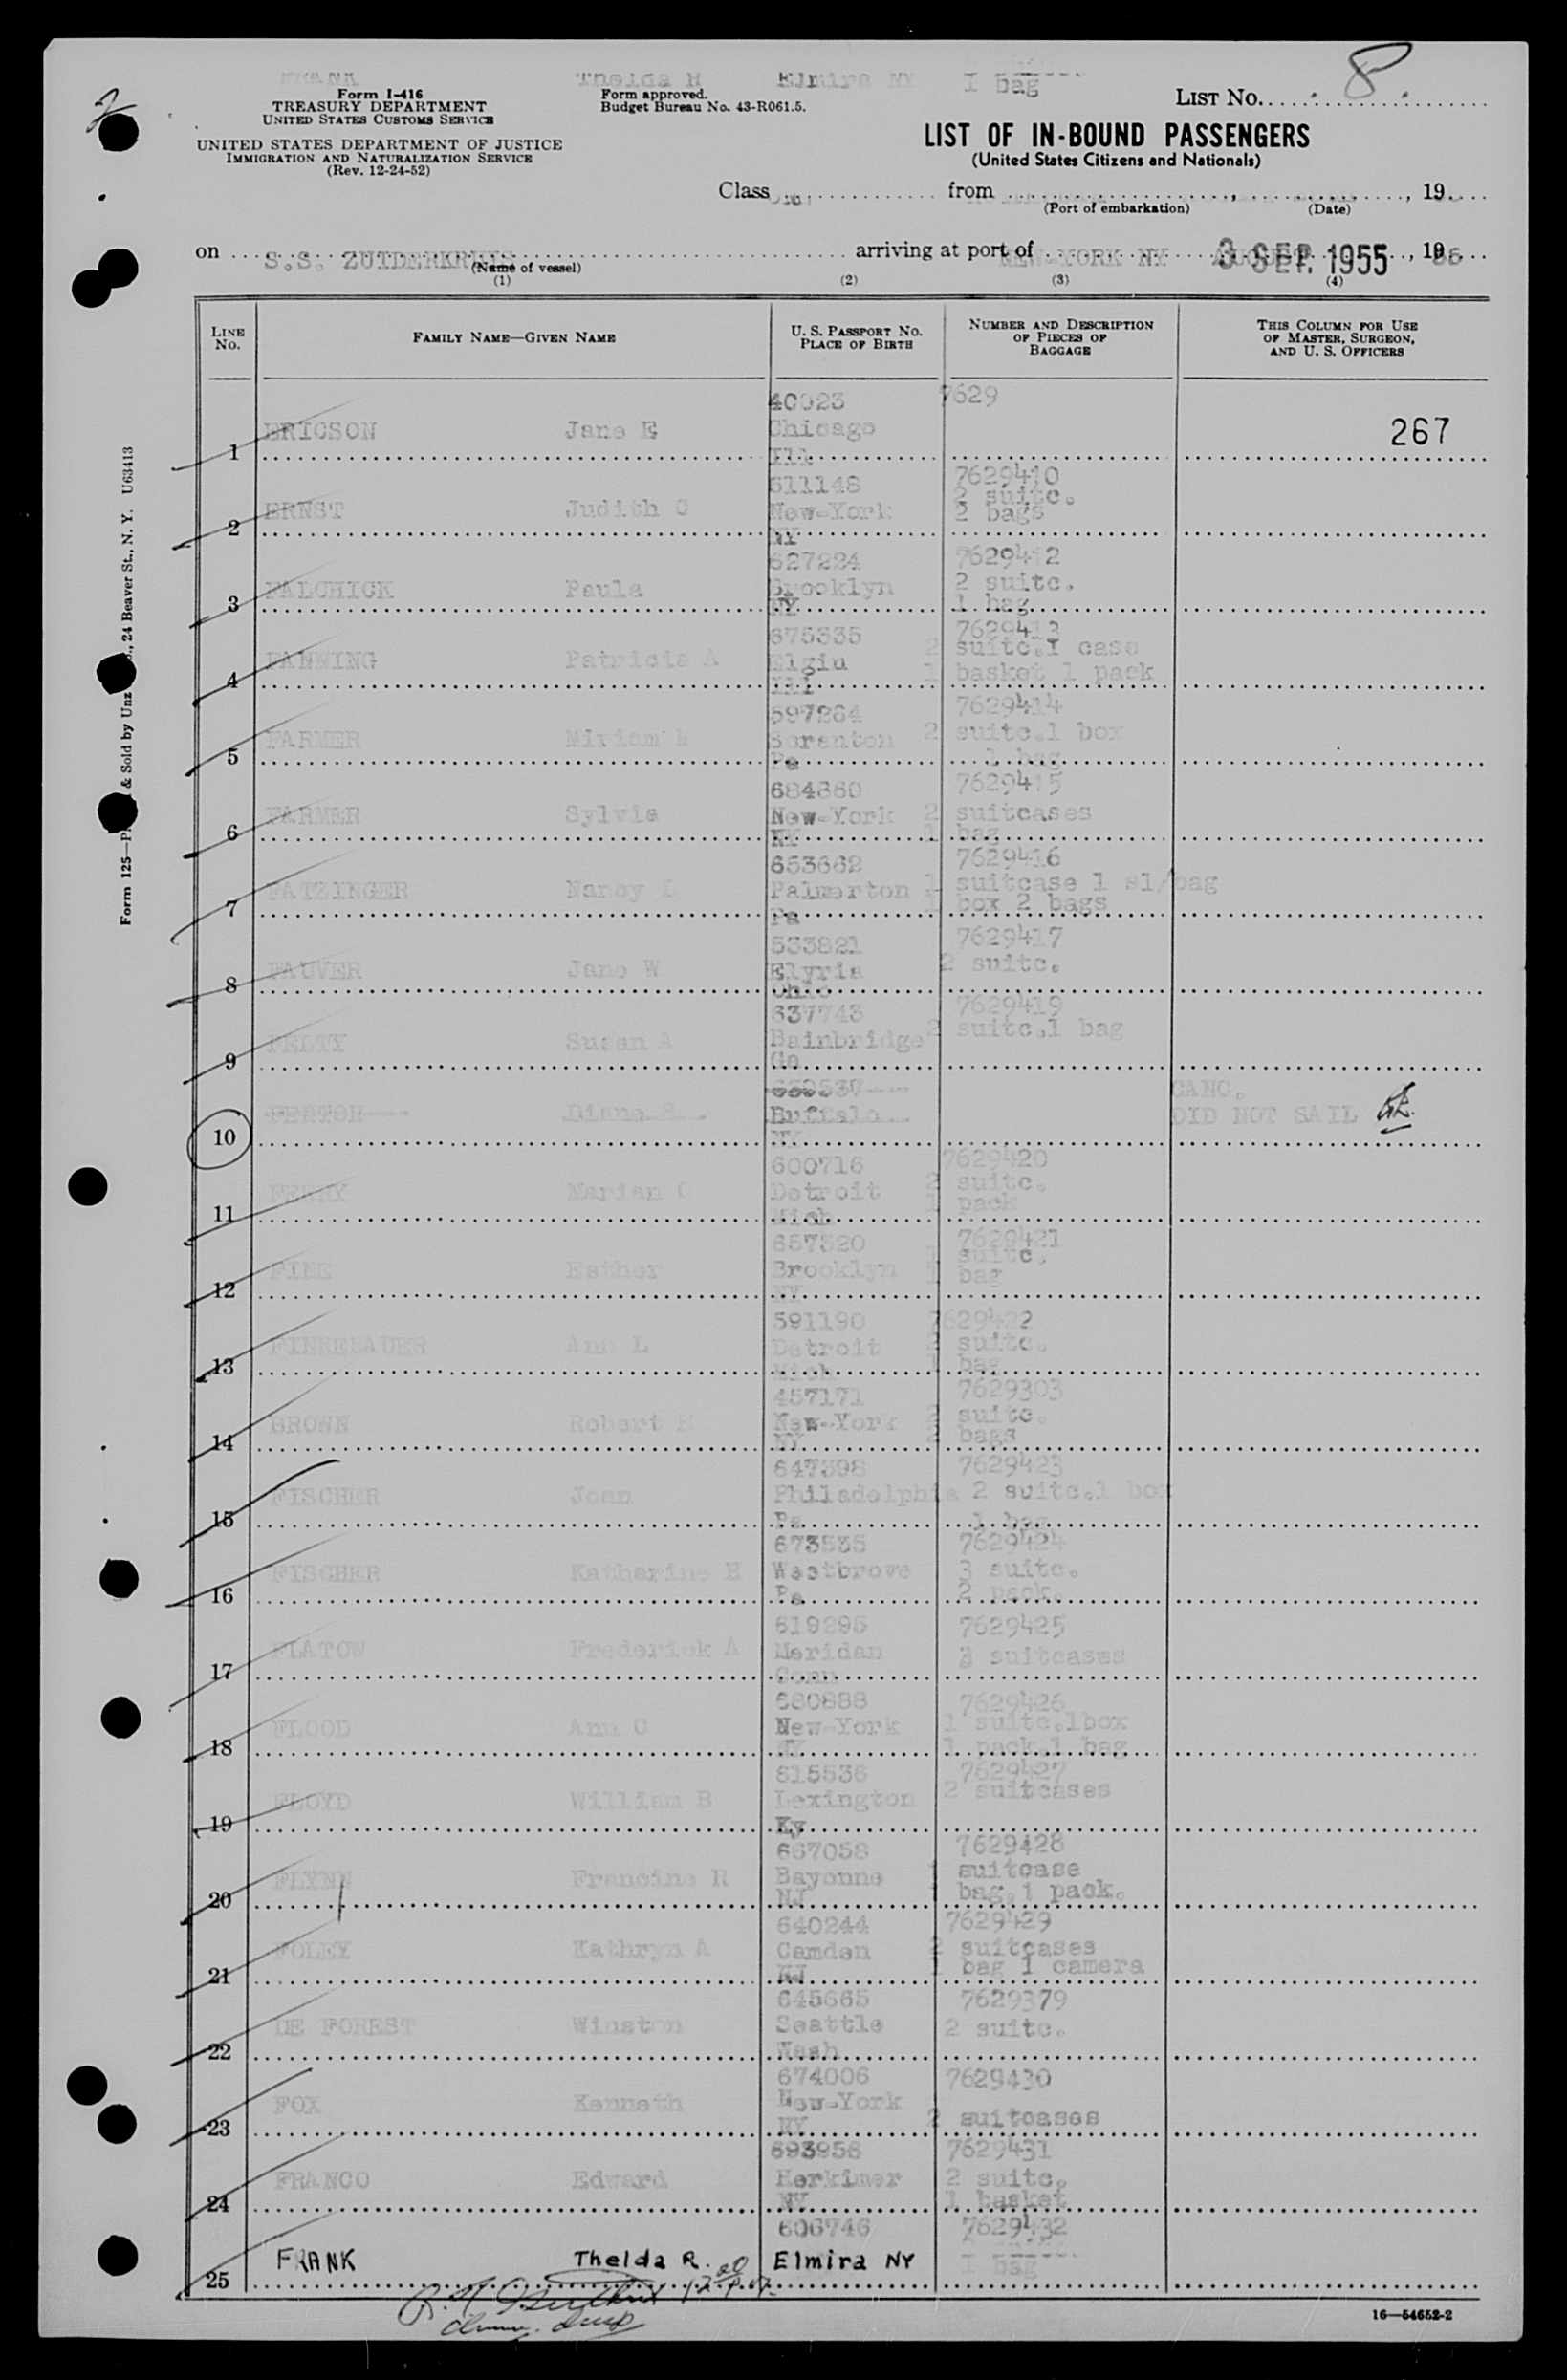 Thelda R Elmira NY 1 bag
Form I-416
TREASURY DEPARTMENT
UNITED STATES CUSTOMS SERVICE
UNITED STATES DEPARTMENT OF JUSTICE
IMMIGRATION AND NATURALIZATION SERVICE
(Rev. 12-24-52)
Form approved.
Budget Bureau No. 43-R061.5.
LIST No. 8
LIST OF IN-BOUND PASSENGERS
(United States Citizens and Nationals)
Class from , , 19
(Port of embarkation) (Date)
on S.S. ZUIDERKRUIS arriving at port of NEW-YORK NY 3 SEP. 1955, 19
(Name of vessel)
(1) (2) (3) (4)
LINE No. FAMILY NAME—GIVEN NAME U. S. PASSPORT No. PLACE OF BIRTH NUMBER AND DESCRIPTION OF PIECES OF BAGGAGE THIS COLUMN FOR USE OF MASTER, SURGEON, AND U. S. OFFICERS
40023 7629
1 ERICSON Jane E Chicago 267
Ill
511148 7629410
2 ERNST Judith C New-York 2 suitc.
NY 2 bags
627224 7629412
3 FALCHICK Paula Brooklyn 2 suitc.
NY 1 bag
675335 7629413
4 FANNING Patricia A Elgiu 2 suitc.1 case
Ill 1 basket 1 pack
597264 7629414
5 FARMER Miriam Scranton 2 suitc.1 box
Pa 1 bag
684860 7629415
6 FARMER Sylvia New-York 2 suitcases
NY 1 bag
653662 7629416
7 FATZINGER Nancy L Palmerton 1 suitcase 1 sl/bag
Pa 1 box 2 bags
533821 7629417
8 FAUVER Jane W Elyria 2 suitc.
Ohio
637743 7629419
9 FELTY Susan A Bainbridge 2 suitc.1 bag
Ga
CANC.
10 Buffalo DID NOT SAIL
NY
600716 7629420
11 FERRY Marian C Detroit 2 suitc.
Mich 1 pack
657320 7629421
12 FINE Esther Brooklyn 1 suitc.
NY 1 bag
591190 7629422
13 Ann L Detroit 2 suitc.
Mich 1 bag
457171 7629303
14 Robert New-York 2 suitc.
NY 2 bags
647398 7629423
15 FISCHER Joan Philadelphia 2 suitc.1 box
Pa 1 bag
673535 7629424
16 FISCHER Katharine H Westbrove 3 suitc.
Pa 2 pack.
619295 7629425
17 FLATOW Frederick A Meridan 3 suitcases
Conn
680888 7629426
18 FLOOD Ann C New-York 1 suitc.1box
NY 1 pack.1 bag
615536 7629427
19 FLOYD William B Lexington 2 suitcases
Ky
667058 7629428
20 FLYNN Francine R Bayonne 1 suitcase
NJ 1 bag.1 pack.
640244 7629429
21 FOLEY Kathryn A Camden 2 suitcases
NJ 1 bag 1 camera
645665 7629379
22 DE FOREST Winston Seattle 2 suitc.
Wash
674006 7629430
23 FOX Kenneth New-York 2 suitcases
NY
693956 7629431
24 FRANCO Edward Herkimer 2 suitc.
NY 1 basket
606746 7629432
25 FRANK Thelda R. Elmira NY 1 bag
16—54652-2
Form 125— & Sold by Unz , 24 Beaver St., N. Y. U63413